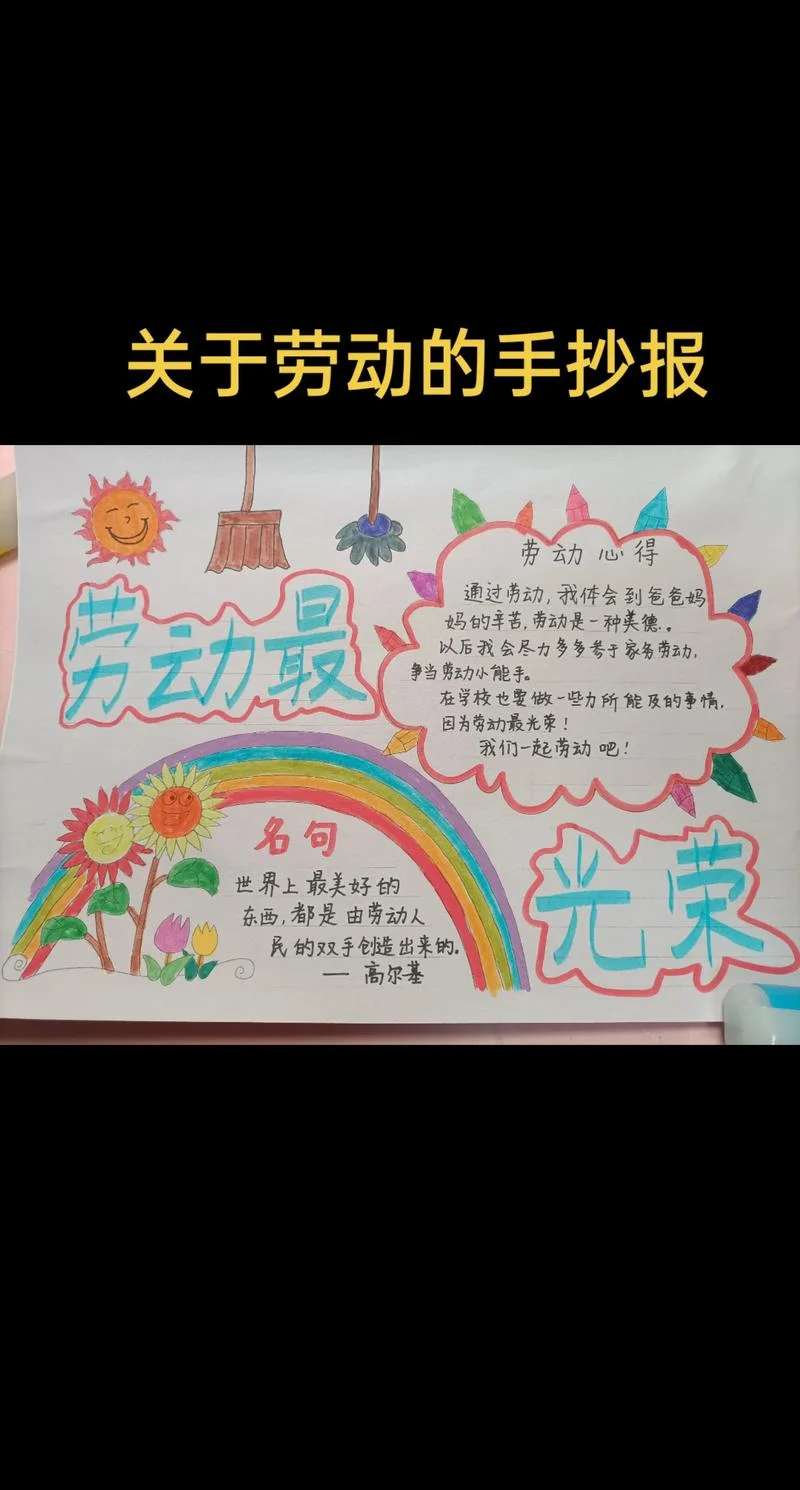 关于劳动的手抄报
劳动最
光荣
劳动心得
通过劳动,我体会到爸爸妈
妈的辛苦,劳动是一种美德。
以后我会尽力多多参于家务劳动,
争当劳动小能手。
在学校也要做一些力所能及的事情,
因为劳动最光荣!
我们一起劳动吧!
名句
世界上最美好的
东西,都是由劳动人
民的双手创造出来的.
— 高尔基